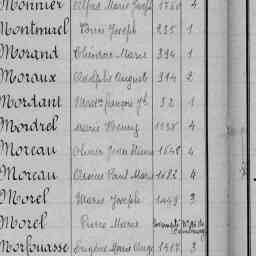 Monnier Alfred Marie Joseph 1760 4
Montmuel Louis Joseph 235 1
Morand Théodore Marie 394 1
Moraux Adolphe Auguste 314 2
Mordant François 32 1
Mordrel Marie 1138 4
Moreau Olivier Jean 1648 4
Moreau Paul Marie 1682 4
Morel Marie Joseph 1449 3
Morel Pierre Marie
Morfouasse Eugène Marie Ange 1417 3